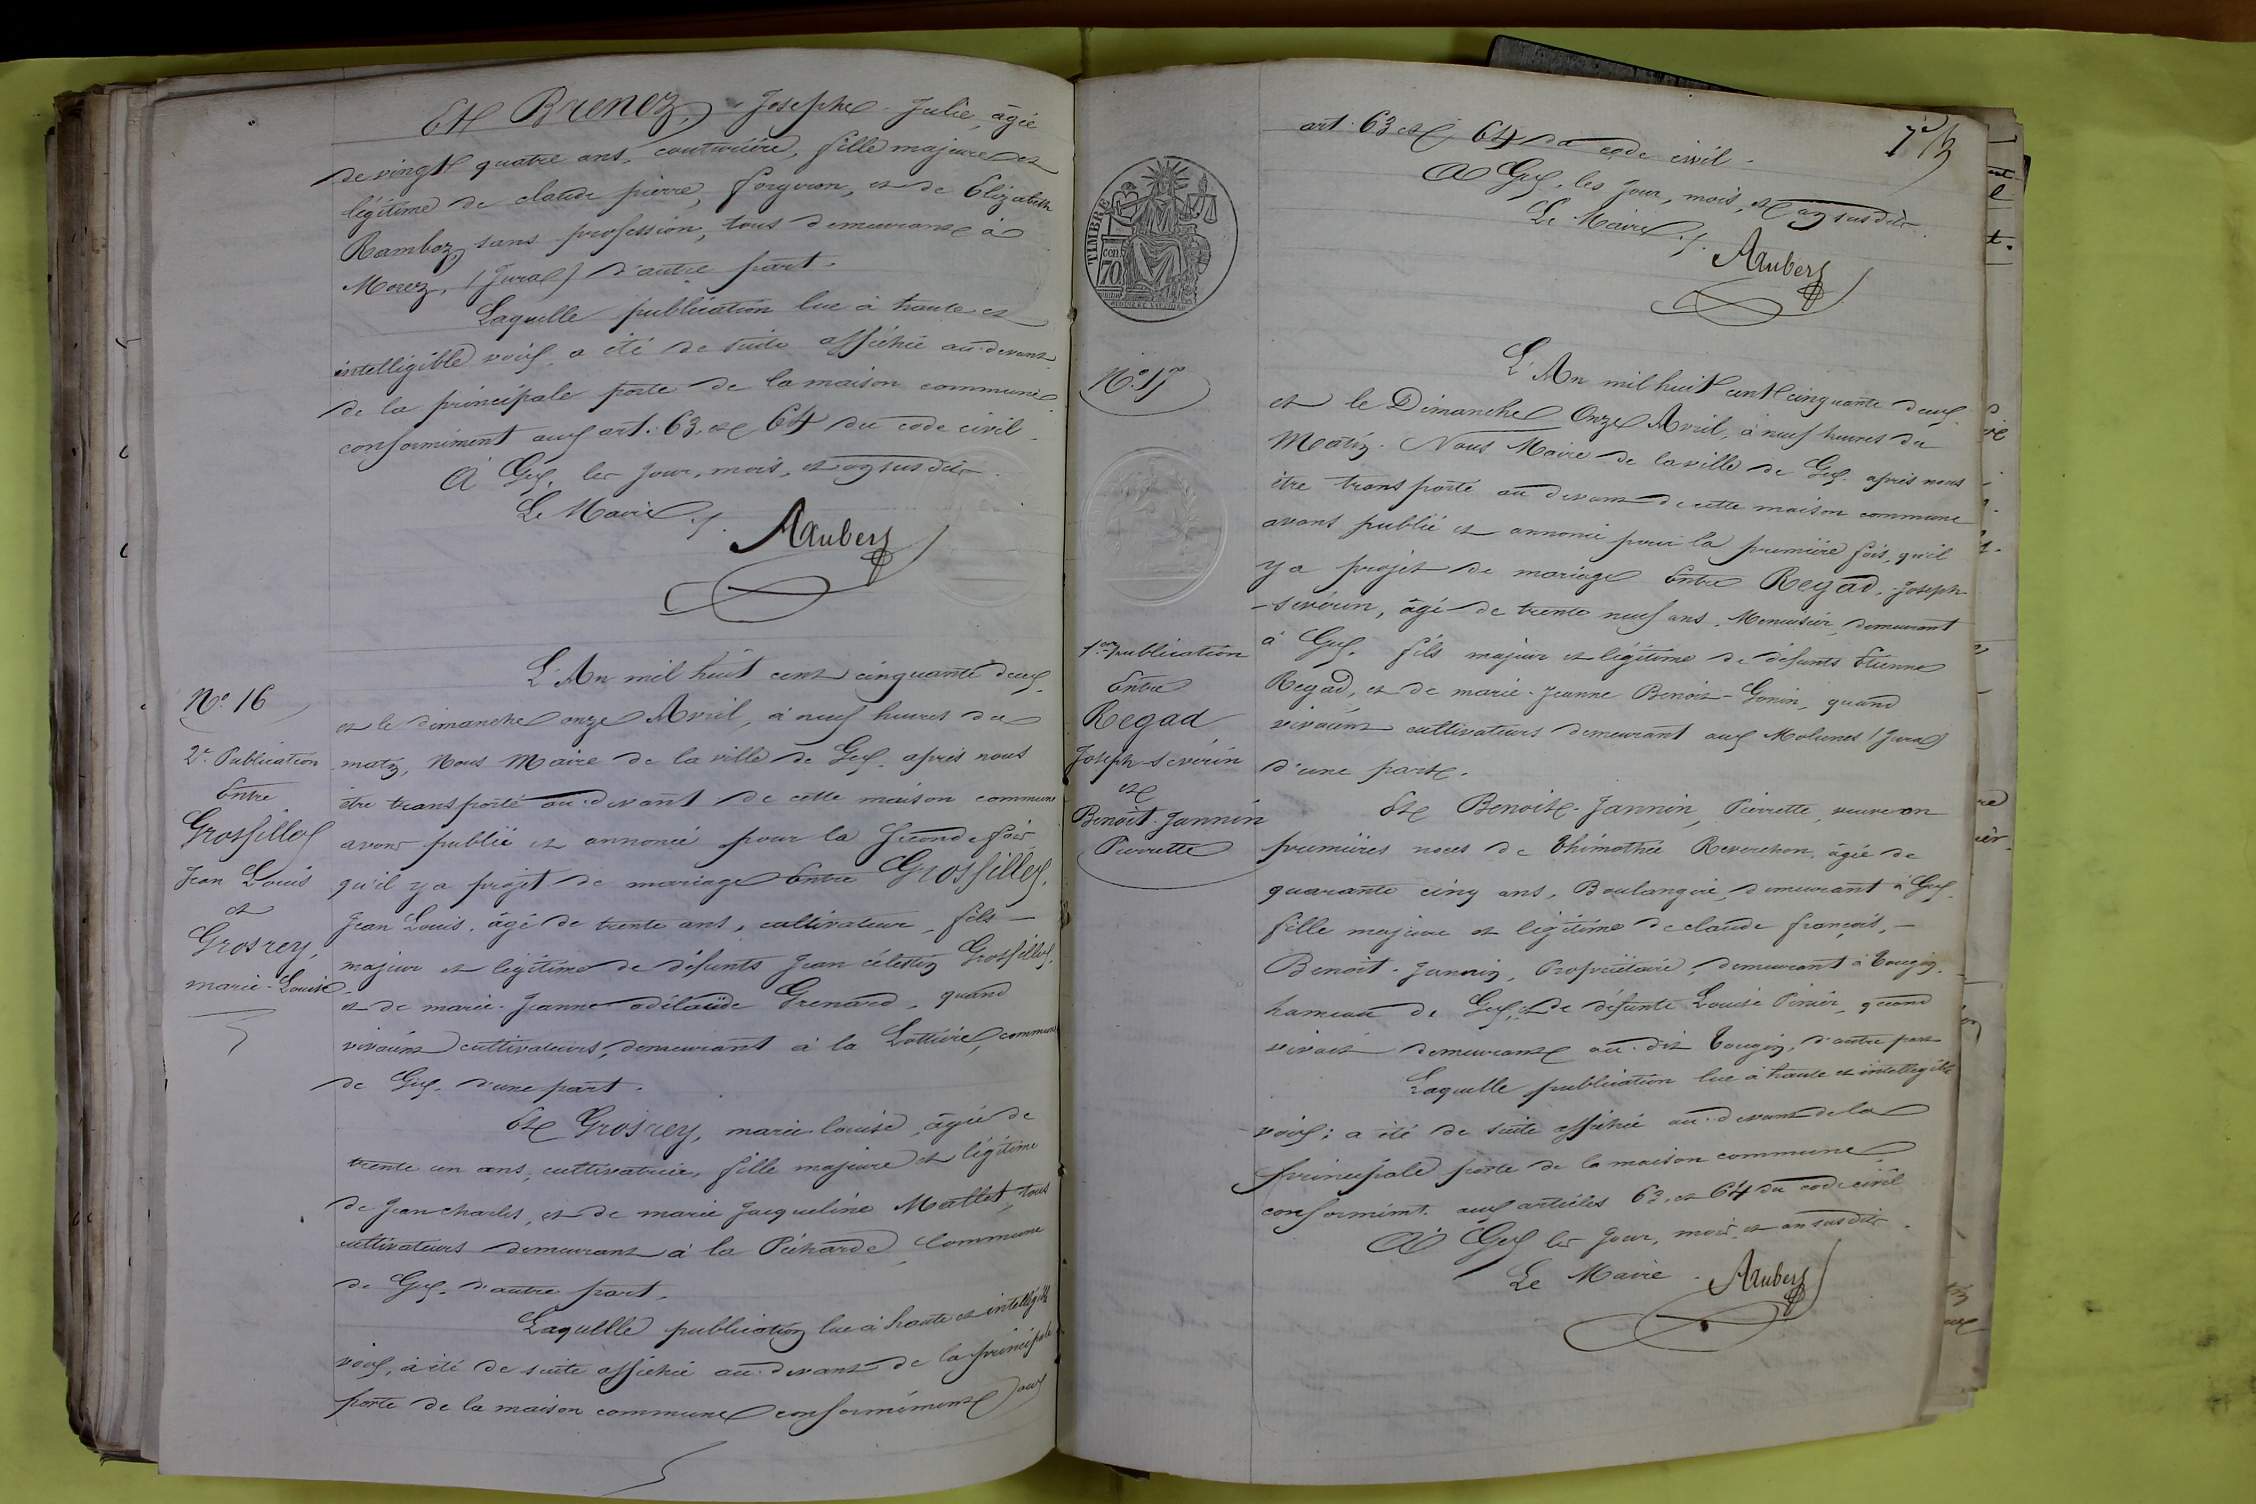 Et Brenez, Josephe-Julie, âgée
de vingt quatre ans, couturière, fille majeure et
légitime de claude pierre, forgeron, et de Elizabeth
Ramboz, sans profession, tous demeurant à
Morez, (Jura) d'autre part.
Laquelle publication lue à haute et
intelligible voix, a été de suite affichée au devant
de la principale porte de la maison commune
conformément aux art. 63 et 64 du code civil.
A Gex, les jour, mois, et an susdits.
Le Maire
Aubert
No. 16
2e. Publication
Entre
Grosfillex
Jean Louis
et
Grosrey,
marie-Louise
L'An mil huit cent cinquante deux
et le dimanche onze Avril, à neuf heures du
matin, Nous Maire de la ville de Gex, après nous
être transporté au-devant de cette maison commune
avons publié et annoncé pour la seconde fois
qu'il y a projet de mariage Entre Grosfillex,
Jean Louis, âgé de trente ans, cultivateur, fils
majeur et légitime de défunts Jean célestin Grosfillex,
et de marie-Jeanne adélaïde Grenard, quand
vivaient cultivateurs, demeurant à la commune
de Gex, d'une part.
Et Grosrey, marie louise, âgée de
trente un ans, cultivatrice, fille majeure et légitime
de Jean charles, et de marie Jacqueline Mallet, tous
cultivateurs demeurant à la Pécharde, Commune
de Gex, d'autre part.
Laquelle publication lue à haute et intelligible
voix, a été de suite affichée au-devant de la principale
porte de la maison commune conformément aux
7e
art. 63 et 64 du code civil.
A Gex, les jour, mois, et an susdits.
Le Maire
Aubert
TIMBRE
70
No. 17
1ere publication
Entre
Regad
Joseph-sévérin
et
Benoit-Jannin
Pierrette
L'An mil huit cent cinquante deux
et le Dimanche Onze Avril, à neuf heures du
Matin. Nous Maire de la ville de Gex, après nous
être transporté au devant de cette maison commune
avons publié et annoncé pour la première fois, qu'il
y a projet de mariage Entre Regad, Joseph
-sévérin, âgé de trente neuf ans, Menuisier, demeurant
à Gex, fils majeur et légitime de défunts Etienne
Regad, et de marie-Jeanne Benoit-Gonin, quand
vivaient cultivateurs demeurant aux Molunes (Jura)
d'une part.
Et Benoit-Jannin, Pierrette, veuve en
premières noces de Thimothée Reverchon, âgée de
quarante cinq ans, Boulangère, demeurant à Gex,
fille majeure et légitime de claude françois,
Benoit-Jannin, Propriétaire, demeurant à Tougin,
hameau de Gex, et de défunte Louise quand
vivait demeurant au-dit Tougin, d'autre part
Laquelle publication lue à haute et intelligible
voix; a été de suite affichée au-devant de la
principale porte de la maison commune
conformémt. aux articles 63 et 64 du code civil
A Gex les jour, mois et an susdits.
Le Maire
Aubert